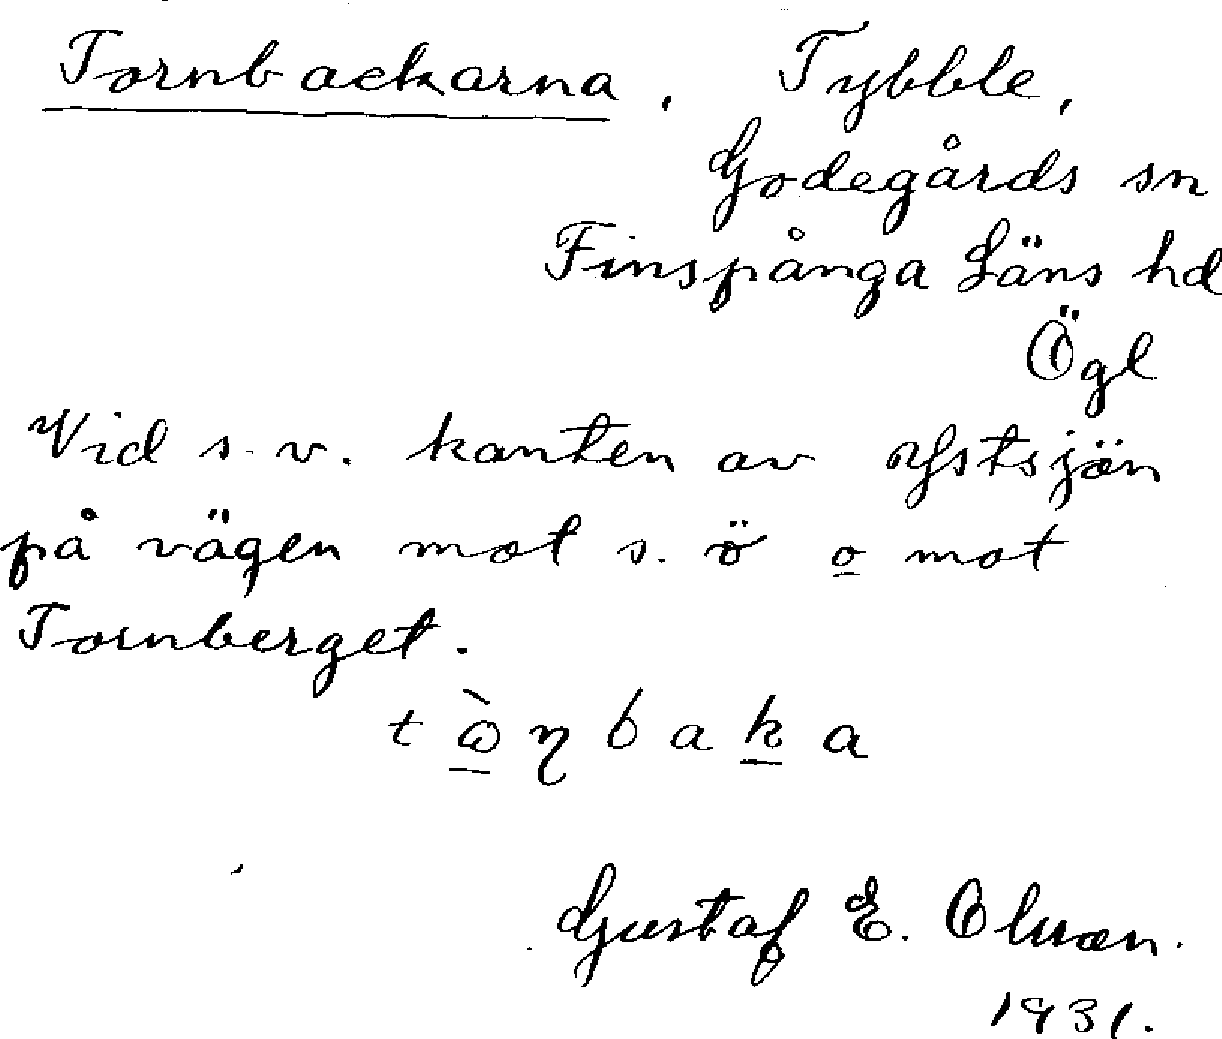 Tornbackarna. Tybble,
Godegårds sn
Finspånga Läns hd
Ögl
Vid s.v. kanten av Ystsjön
på vägen mot s.ö o mot
Tornberget.
tὼɳbaka
Gustaf E. Olsson.
1931.